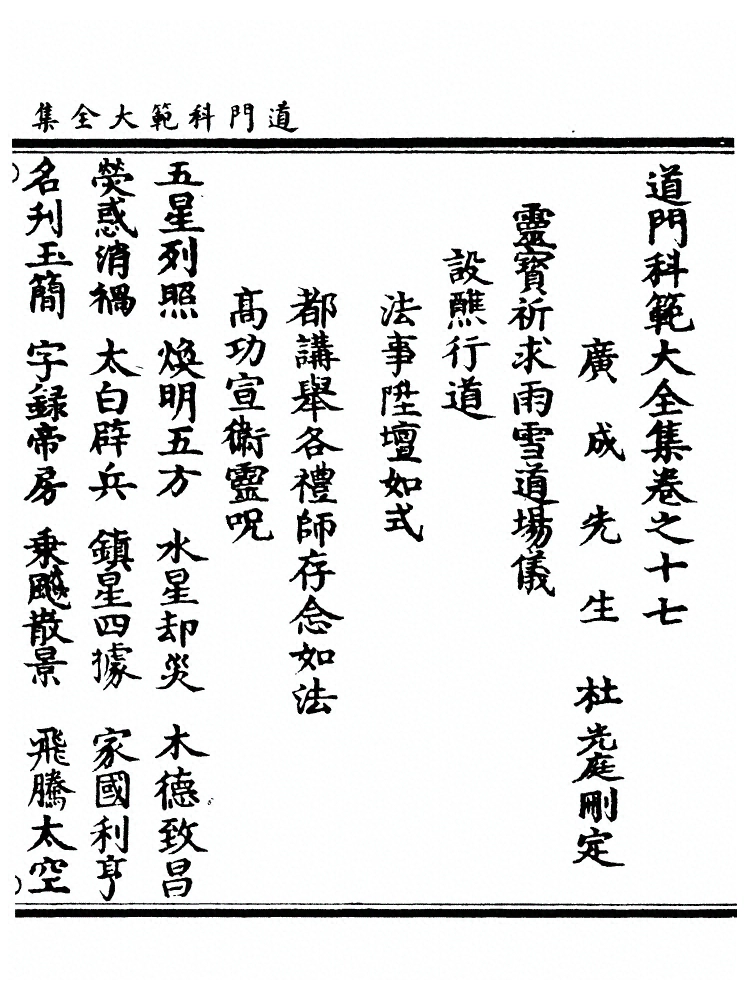 道門科範大全集
道門科範大全集卷之十七
廣成先生杜光庭刪定
靈寶祈求雨雪道場儀
設醮行道
法事陞壇如式
都講舉各禮師存念如法
高功宣衛靈呪
五星列照 煥明五方 水星却災 木德致昌
熒惑消禍 太白辟兵 鎮星四據 家國利亨
名刋玉簡 字錄帝房 乘飈散景 飛騰太空